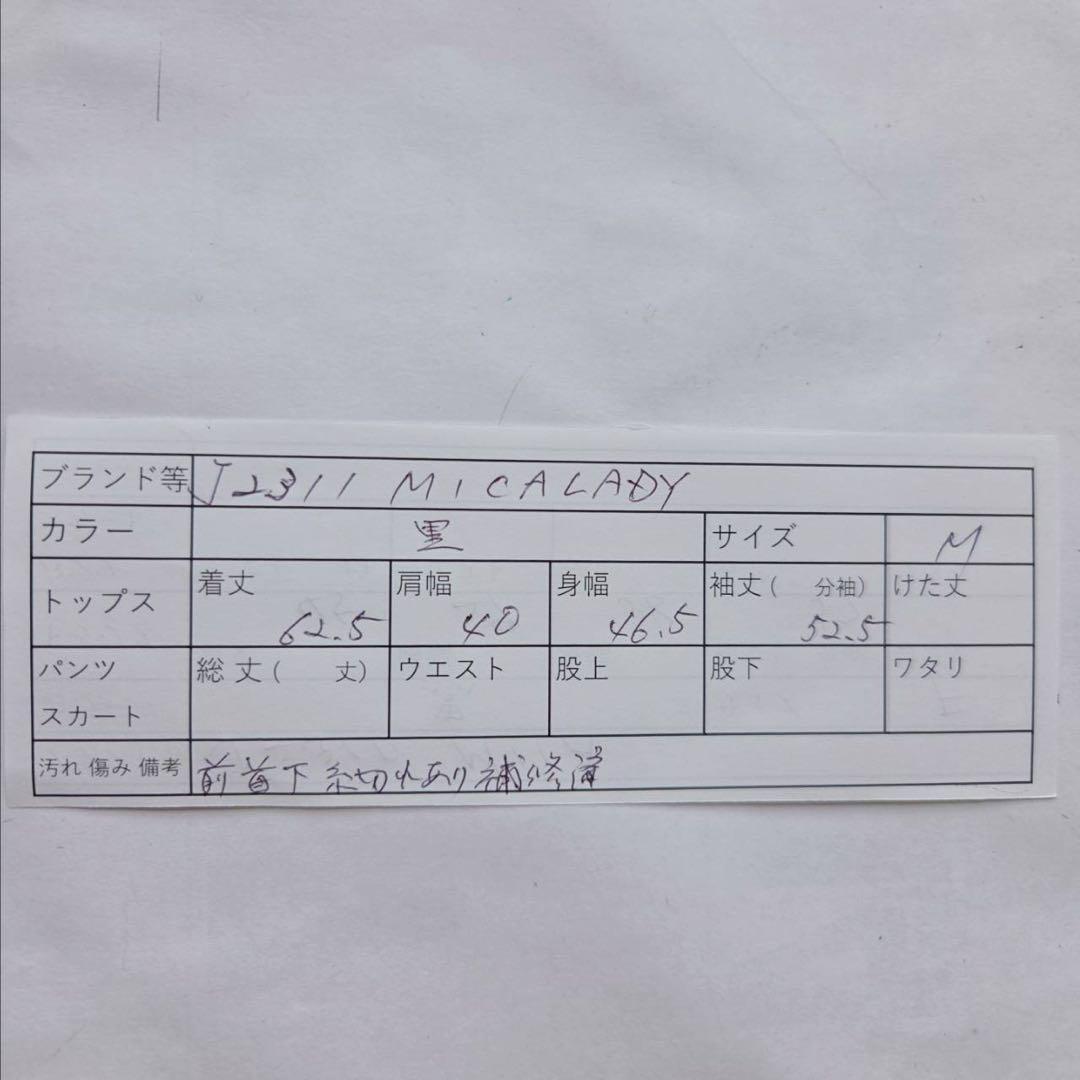 ブランド等 J2311 MICALADY
カラー 黒 サイズ M
トップス 着丈 62.5 肩幅 40 身幅 46.5 袖丈(　分袖) 52.5 けた丈
パンツ スカート 総丈(　丈) ウエスト 股上 股下 ワタリ
汚れ 傷み 備考 前首下 糸切れあり 補修済